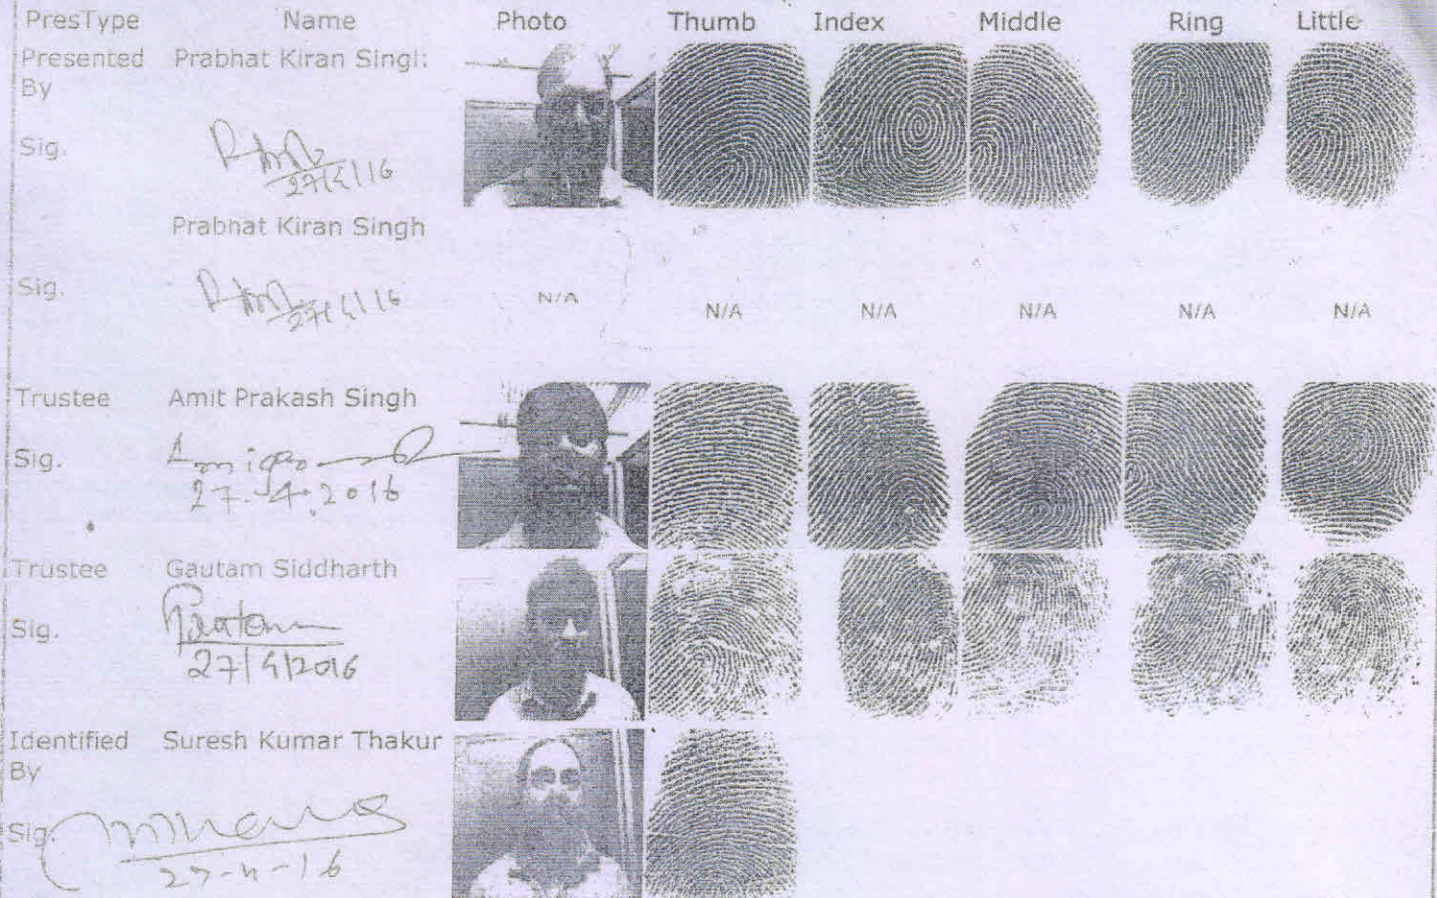 PresType Name Photo Thumb Index Middle Ring Little
Presented Prabhat Kiran Singh
By
Sig.
27/4/16
Prabhat Kiran Singh
Sig.
27/4/16
N/A N/A N/A N/A N/A N/A
Trustee Amit Prakash Singh
Sig.
27.4.2016
Trustee Gautam Siddharth
Sig. Gautam
27/4/2016
Identified Suresh Kumar Thakur
By
Sig.
27-4-16